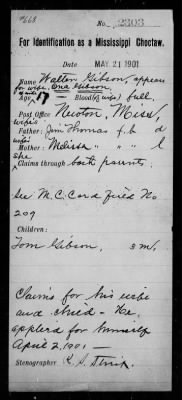 #668
No. 2303
For Identification as a Mississippi Choctaw.
Date MAY 21 1901
Name Walton Gibson, appears
for wife, Ona Gibson.
Age of wife 17 Blood (of wife) full.
Post Office Newton, Miss,
wife's
Father: Jim Thomas f.b d
wife's
Mother: Melissa " " " l
she
Claims through both parents.
See M.C. Card Field No.
209
Children:
Tom Gibson, 3 m,
Claims for his wife
and child - He
applied for himself
April 2, 1901 -
Stenographer